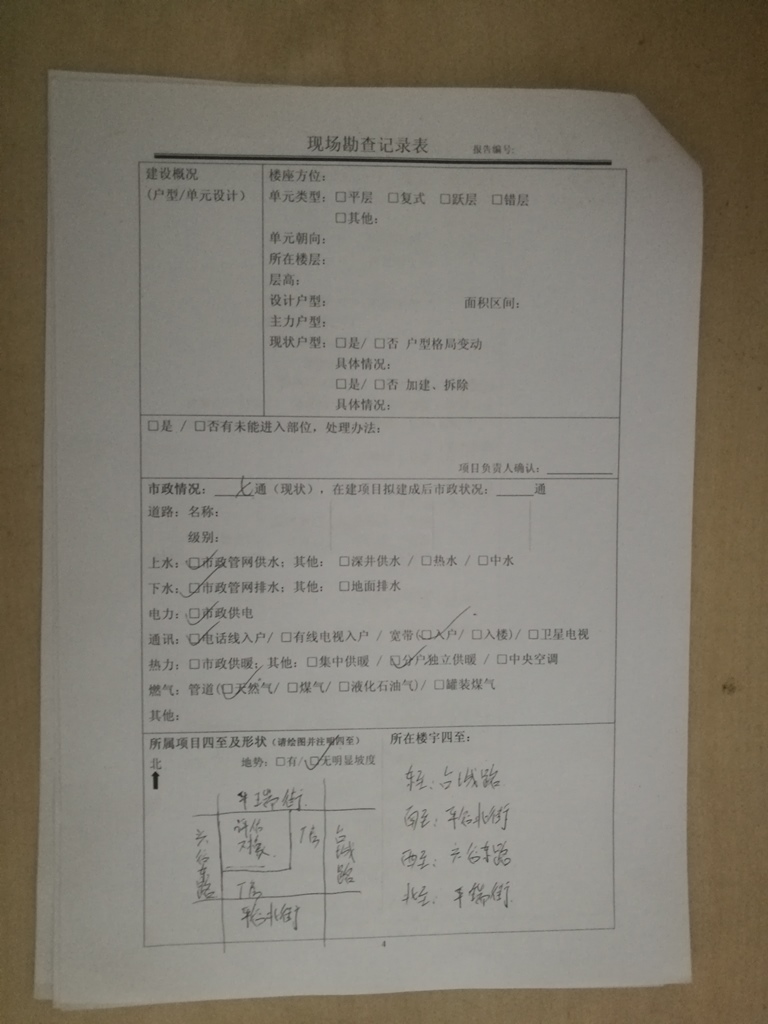 现场勘查记录表 报告编号:
建设概况
(户型/单元设计)
楼座方位:
单元类型: □平层 □复式 □跃层 □错层
□其他:
单元朝向:
所在楼层:
层高:
设计户型: 面积区间:
主力户型:
现状户型: □是/ □否 户型格局变动
具体情况:
□是/ □否 加建、拆除
具体情况:
□是 / □否有未能进入部位, 处理办法:
项目负责人确认:
市政情况: 通(现状), 在建项目拟建成后市政状况: 通
道路: 名称:
级别:
上水: □市政管网供水; 其他: □深井供水 / □热水 / □中水
下水: □市政管网排水; 其他: □地面排水
电力: □市政供电
通讯: □电话线入户/ □有线电视入户 / 宽带(□入户/ □入楼)/ □卫星电视
热力: □市政供暖; 其他: □集中供暖 / □分户独立供暖 / □中央空调
燃气: 管道(□天然气/ □煤气/ □液化石油气)/ □罐装煤气
其他:
所属项目四至及形状(请绘图并注明四至)
北 地势: □有/ □无明显坡度
平瑞街
评估
对象
厂房
台城路
六谷东路
厂房
平谷北街
所在楼宇四至:
东至: 台城路
西至: 平谷北街
西至: 六谷东路
北至: 平瑞街
4